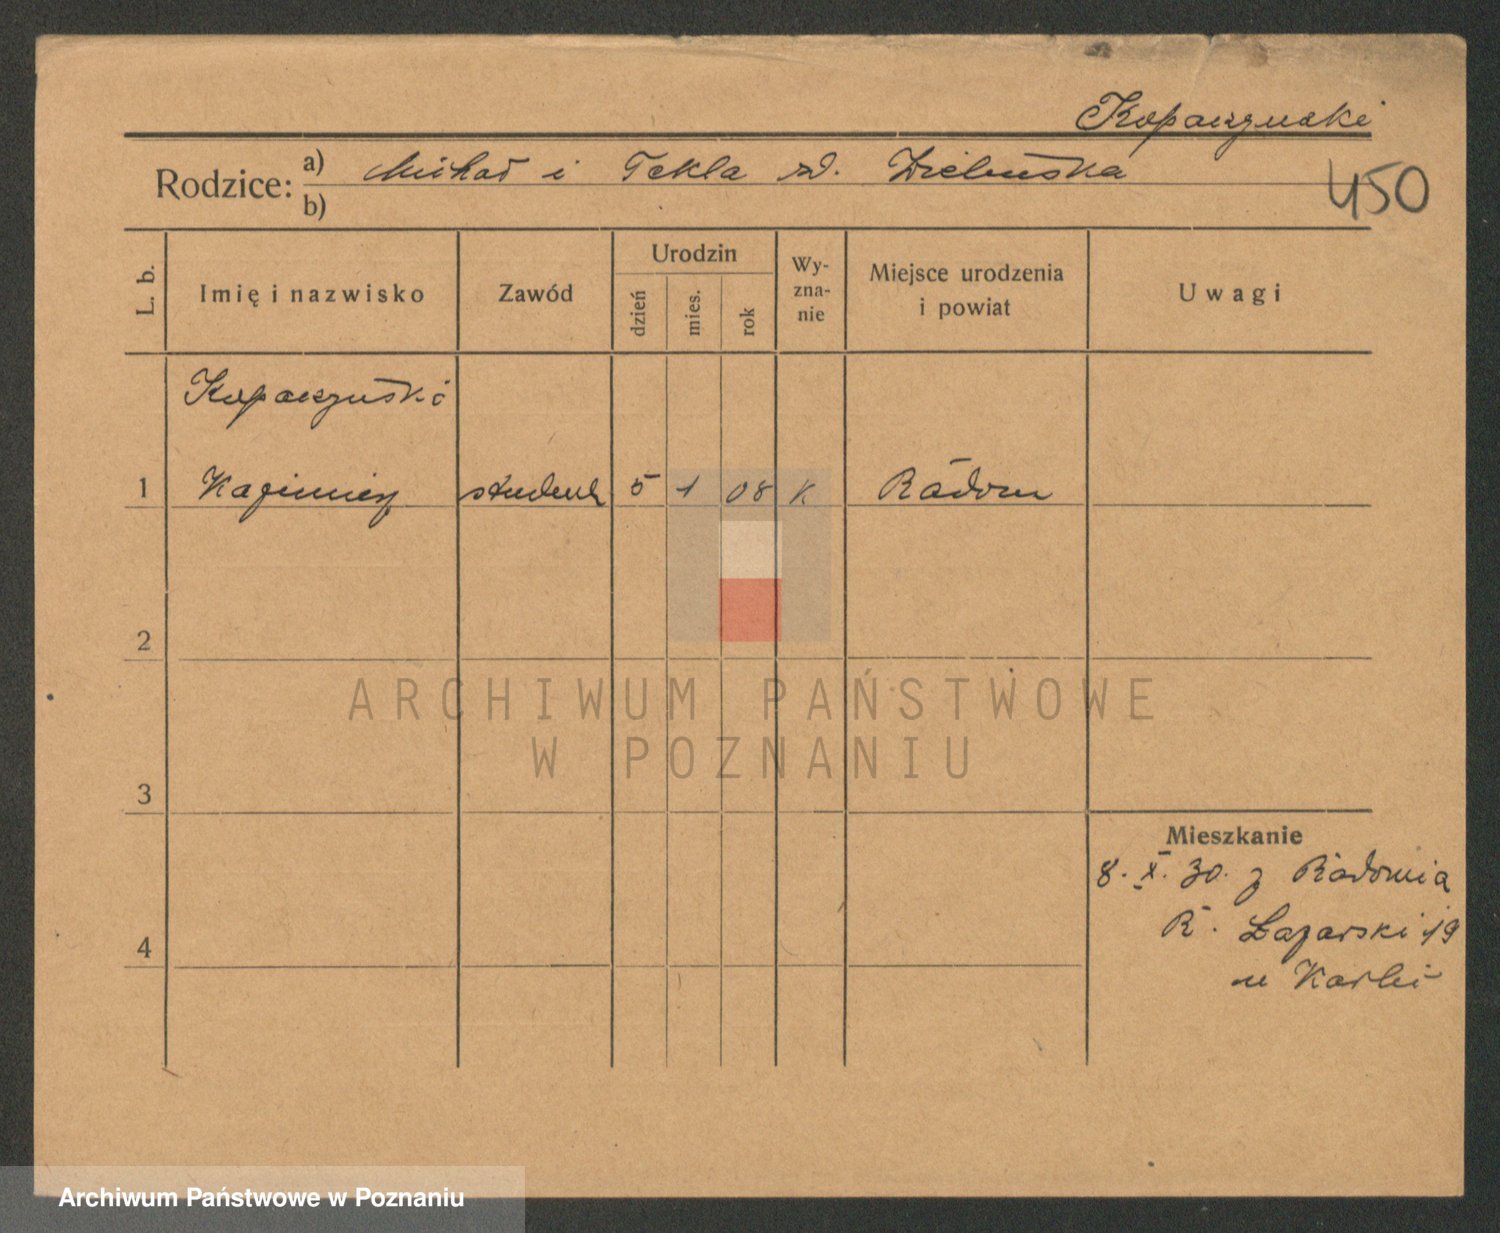 Kopaczyński
Rodzice:
a) Michał i Tekla zd. Zielińska
b)
450
L. b.
Imię i nazwisko
Zawód
Urodzin
dzień
mies.
rok
Wy-
zna-
nie
Miejsce urodzenia
i powiat
Uwagi
Kopaczyński
1 Kazimierz student 5 1 08 K Radom
2
3
4
Mieszkanie
8. X. 30. z Radomia
R. Łazarski 19
u
ARCHIWUM PAŃSTWOWE
W POZNANIU
Archiwum Państwowe w Poznaniu